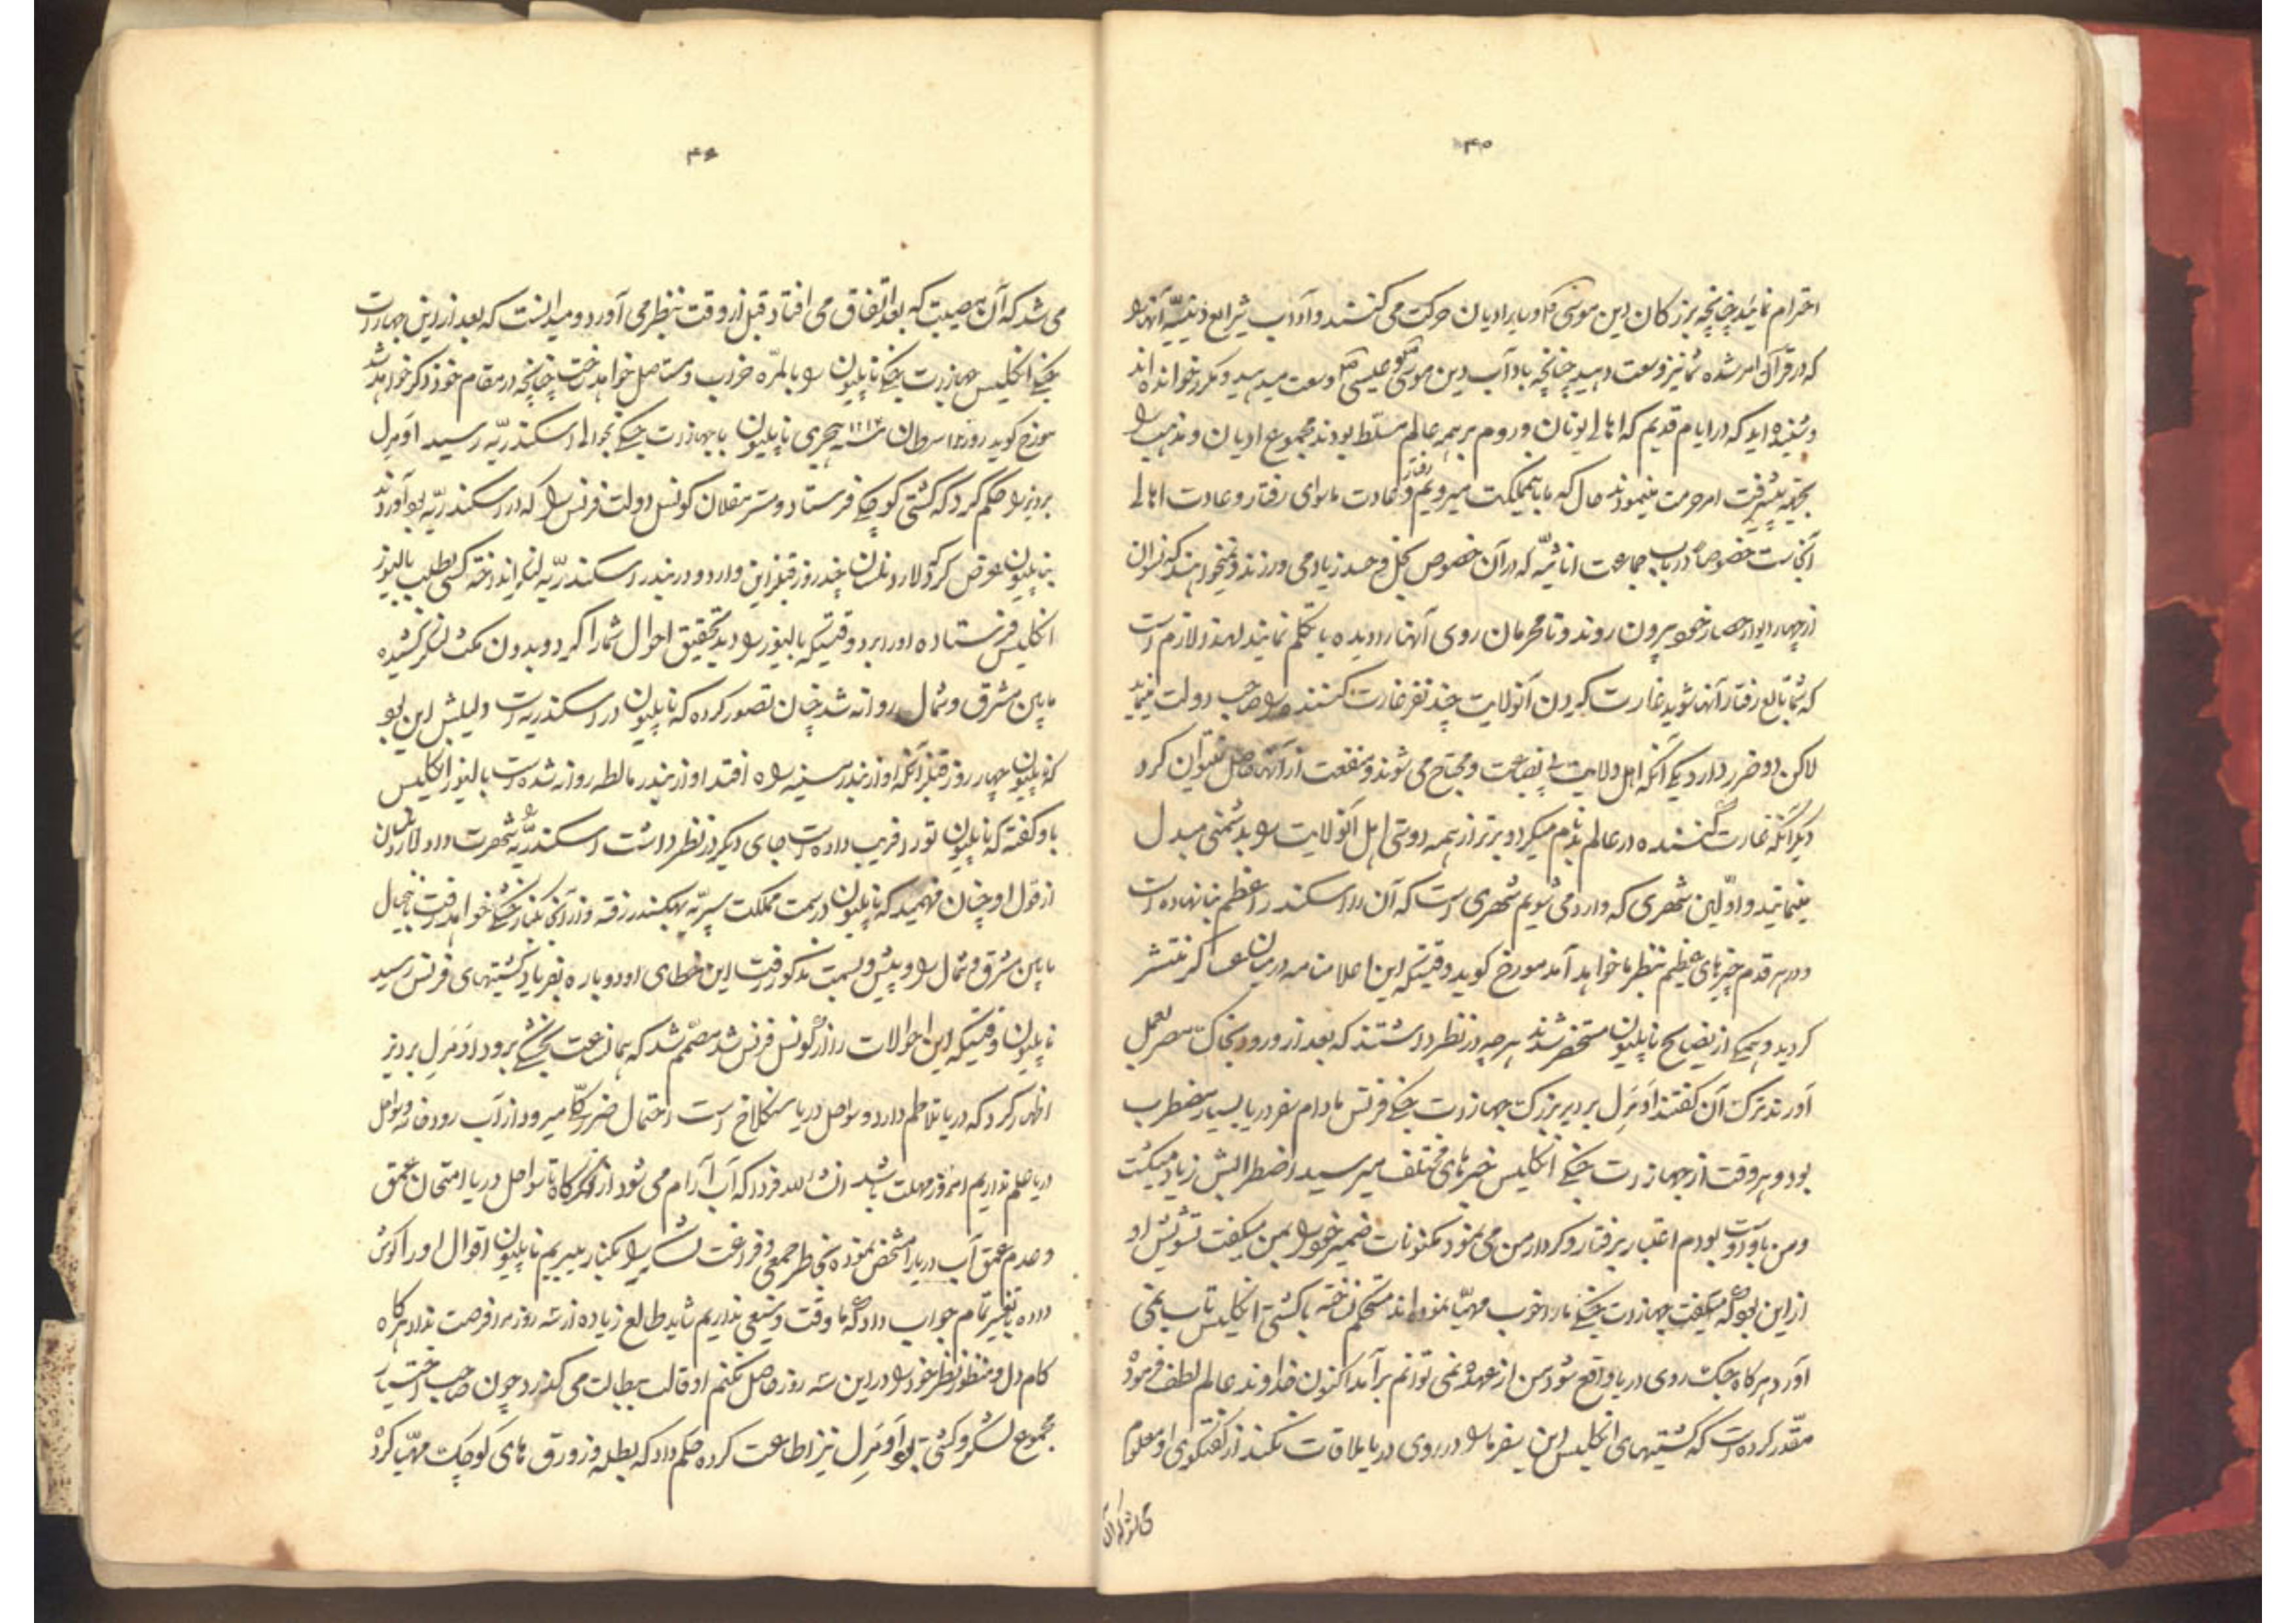 ۴۵
احترام نمائید چنانچه بزرگان دین موسی و سایر ادیان حرکت می کنند و آداب شرایع دینیه آنها را
که در قرآن امر شده شما نیز وسعت دهید چنانچه باداب دین موسی و عیسی وسعت میدهید و مکرر خوانده اند
و شنیده اید که در ایام قدیم که اهالی یونان و روم بر همه عالم مسلط بودند مجموع ادیان و مذهب را
بجهة پیشرفت امر حرمت مینمودند حال که ما بآنمملکت میرویم رفتار و عادت ماسوای رفتار و عادت اهالی
آنجاست خصوصا در باب جماعت اناثیه که در آن خصوص بخل و حسد زیاد می ورزند و نمیخواهند که نسوان
از چهار دیوار حصار خود بیرون روند و نامحرمان روی آنها را دیده یا تکلم نمایند لهذا لازم است
که شما تابع رفتار آنها شوید غارت کردن آنولایت چند نفر غارت کننده را صاحب دولت مینماید
لاکن دو ضرر دارد یکی آنکه اهل ولایت بی بضاعت و محتاج می شوند و منفعت از آنها حاصل نمیتوان کرد
دیگر آنکه غارت کننده در عالم بدنام میگردد و بدتر از همه دوستی اهل آنولایت را بدشمنی مبدل
مینمایند و اولین شهری که وارد می شویم شهری است که آن را اسکندر اعظم بنا نهاده است
و در هر قدم چیزهای عظیم بنظر ما خواهد آمد مورخ گوید وقتیکه این اعلامنامه در میان عساکر منتشر
گردید و همگی از نصایح ناپلیون مستحضر شدند هر چه در نظر داشتند که بعد از ورود بخاک مصر بعمل
آورند ترک آن گفتند اومرل برویز بزرگ جهازات جنگی فرانس مادام سفر دریا بسیار مضطرب
بود و هر وقت از جهازات جنگی انگلیس خبرهای مختلف میرسید اضطرابش زیاد میگشت
و من با او دوست بودم اعتبار بر رفتار و کردار من می نمود مکنونات ضمیر خود را بمن میگفت تشویش او
از این بود که میگفت جهازات جنگی ما را خوب مهیا ننموده اند مستحکم نساخته با کشتی انگلیس تاب نمی
آورد هر گاه جنگ روی دریا واقع شود من از عهده نمی توانم برآمد اکنون خداوند عالم لطف فرموده
مقدر کرده است که کشتیهای انگلیس این سفر ما را در روی دریا ملاقات نکند از گفتگوی او معلوم
۴۶
می شد که آن مصیبت که بعد اتفاق می افتاد قبل از وقت بنظر می آورد و میدانست که بعد از این جهازات
جنگی انگلیس جهازات جنگی ناپلیون را بالمره خراب و مستاصل خواهد ساخت چنانچه در مقام خود ذکر خواهد شد
مورخ گوید روز ۱۲ سرطان سنه ۱۲۱۳ هجری ناپلیون با جهازات جنگی بحوالی اسکندریه رسید اومرل
برویز را حکم کرد که کشتی کوچکی فرستاد و مستر مقلان کونسل دولت فرنس را که در اسکندریه بود آوردند
بناپلیون عرض کرد لارد نلسان چند روز قبل از این وارد و در بندر اسکندریه لنگر انداخته کسی بطلب بالیوز
انگلیس فرستاده او را برد وقتیکه بالیوز را دید تحقیق احوال شما را کرد و بدون مکث لنگر کشیده
مابین مشرق و شمال روانه شد چنان تصور کرده که ناپلیون در اسکندریه است دلیلش این بود
که ناپلیون چهار روز قبل از آنکه او از بندر مسینه راه افتد او از بندر مالطه روانه شده است بالیوز انگلیس
باو گفته که ناپلیون تو را فریب داده است جای دیگر در نظر داشت اسکندریه را شهرت داد لارد نلسان
از قول او چنان فهمید که ناپلیون در سمت مملکت سیریه بهکسندر رفته و از آنجا بکنار خشکی خواهد رفت باینخیال
مابین مشرق و شمال را و پیش و بسمت مذکور رفت این خطای او دوباره بفریاد کشتیهای فرنس رسید
ناپلیون وقتیکه این احوالات را از کونسل فرنس شنید مصمم شد که همان ساعت بخشکی برود اومرل برویز
اظهار کرد که دریا تلاطم دارد و سواحل دریا سنگلاخ است احتمال ضرر کلی میرود از آب رودخانه و سواحل
دریا علم نداریم امروز مهلت باشد انشاءالله فردا که آب آرام می شود از لنگرگاه تا سواحل دریا امتحان عمق
و عدم عمق آب دریا را مشخص نموده بخاطر جمعی و فراغت لشگر را بکنار میبریم ناپلیون اقوال او را گوش
داده بتغییر تمام جواب داد که ما وقت وسیعی نداریم شاید طالع زیاده از سه روز مرا فرصت نداد هر گاه
کام دل و منظور نظر خود را در این سه روز حاصل نکنم اوقات ببطالت می گذرد چون صاحب اختیار
مجموع لشگر و کشتی بود اومرل نیز اطاعت کرده حکم داد که بطله و زورق های کوچک مهیا کردند